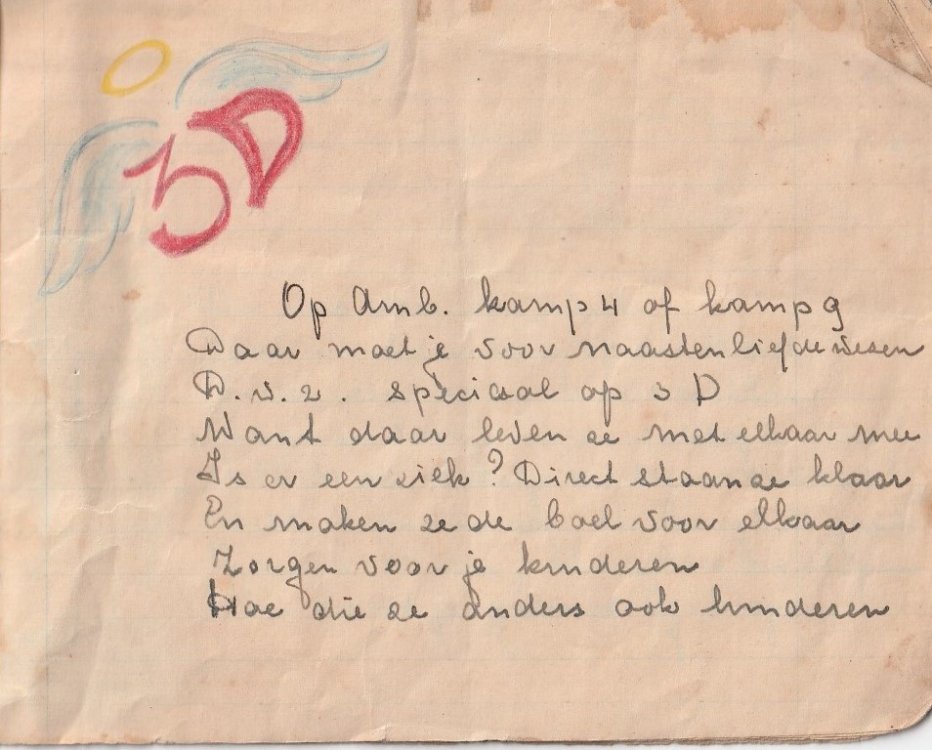 3D
Op Amb. kamp 4 of kamp 9
Daar moet je voor naastenliefde wesen
D.v.z. speciaal op 3 D
Want daar leven ze met elkaar mee
Is er een ziek? Direct staan ze klaar
En maken ze de boel voor elkaar
Zorgen voor je kinderen
Hoe die ze anders ook hinderen